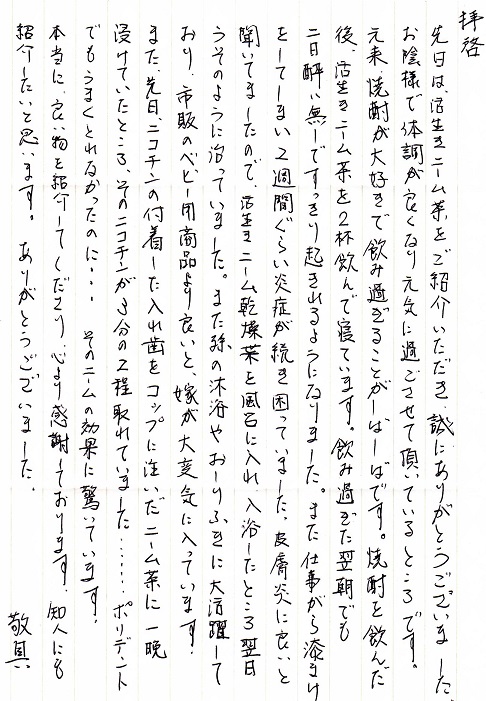 拝啓
先日は、活生きニーム茶をご紹介いただき、誠にありがとうございました。
お陰様で体調が良くなり元気に過ごさせて頂いているところです。
元来、焼酎が大好きで飲み過ぎることがしばしばです。焼酎を飲んだ
後、活生きニーム茶を2杯飲んで寝ています。飲み過ぎた翌朝でも
二日酔い無しですっきり起きれるようになりました。また仕事がら漆まけ
をしてしまい2週間ぐらい炎症が続き困っていました。皮膚炎に良いと
聞いてましたので、活生きニーム乾燥葉を風呂に入れ、入浴したところ翌日
うそのように治っていました。また孫の沐浴やおしりふきに大活躍して
おり、市販のベビー用商品より良いと、嫁が大変気に入っています。
また、先日、ニコチンの付着した入れ歯をコップに注いだニーム茶に一晩
浸けていたところ、そのニコチンが3分の2程取れていました……ポリデント
でもうまくとれなかったのに・・・ そのニームの効果に驚いています。
本当に、良い物を紹介してくださり、心より感謝しております。知人にも
紹介したいと思います。 ありがとうございました。
敬具